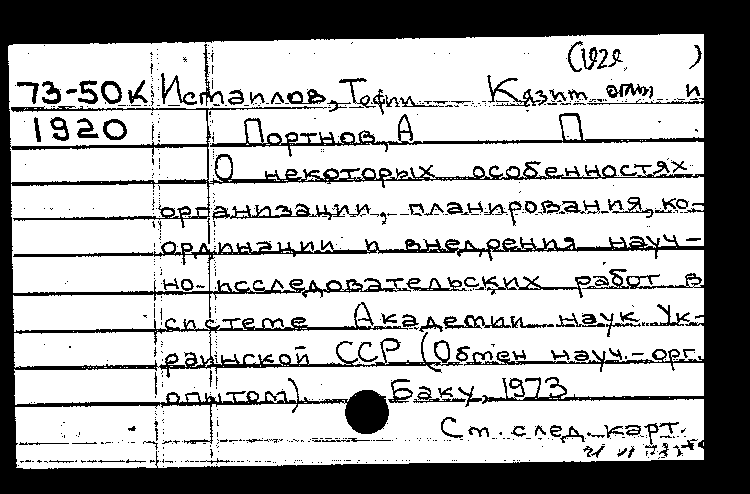 (1929 )
73-50к Исмаилов, Тофик Кязим оглы и
1920 Портнов, А П
О некоторых особенностях
организации, планирования, ко-
ординации и внедрения науч-
но-исследовательских работ в
системе Академии наук Ук-
раинской ССР. (Обмен науч.-орг.
опытом). Баку, 1973
См. след. карт.